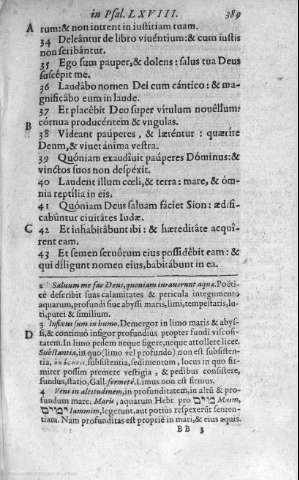 in Psal. LXVIII. 389
A rum: & non intrent in iustitiam tuam.
34 Deleántur de libro viuéntium: & cum iustis
non scribántur.
35 Ego sum pauper, & dolens: salus tua Deus
suscépit me.
36 Laudábo nomen Dei cum cántico: & ma-
gnificábo eum in laude.
37 Et placébit Deo super vítulum nouéllum:
B córnua producéntem & vngulas.
38 Vídeant paúperes, & læténtur: quærite
Deum, & viuet ánima vestra.
39 Quóniam exaudíuit paúperes Dóminus: &
vinctos suos non despéxit.
40 Laudent illum cœli, & terra: mare, & óm-
nia reptília in eis.
41 Quóniam Deus saluam fáciet Sion: ædifi-
cabúntur ciuitátes Iudæ.
C 42 Et inhabitábunt ibi: & hæreditáte acquí-
rent eam.
43 Et semen seruórum eius possidébit eam: &
qui díligunt nomen eius, habitábunt in ea.
2 Saluum me fac Deus, quoniam intrauerunt aquæ. Poëti-
cè describit suas calamitates & pericula integumento
aquarum, profundi siue abyssi maris, limi, tempestatis, lu-
ti, putei & similium.
3 Infixus sum in limo. Demergor in limo maris & abys-
D si, & continuò infigor profundius propter fundi viscosi-
tatem. In limo pedem neque figere, neque attollere licet.
Substantia, in quo (limo vel profundo) non est subsisten-
tia, subsistentia, sedimentum, locus in quo fir-
miter possim premere vestigia, & pedibus consistere,
fundus, statio, Gall. fermeté. Limus non est firmus.
4 Veni in altitudinem, in profunditatem, in altū & pro-
fundum mare. Maris, aquarum Hebr. pro מים Maim,
ימים Iammim, legerunt, aut potiùs respexerūt senten-
tiam. Nam profunditas est propriè in mari, & eius aquis.
BB 3